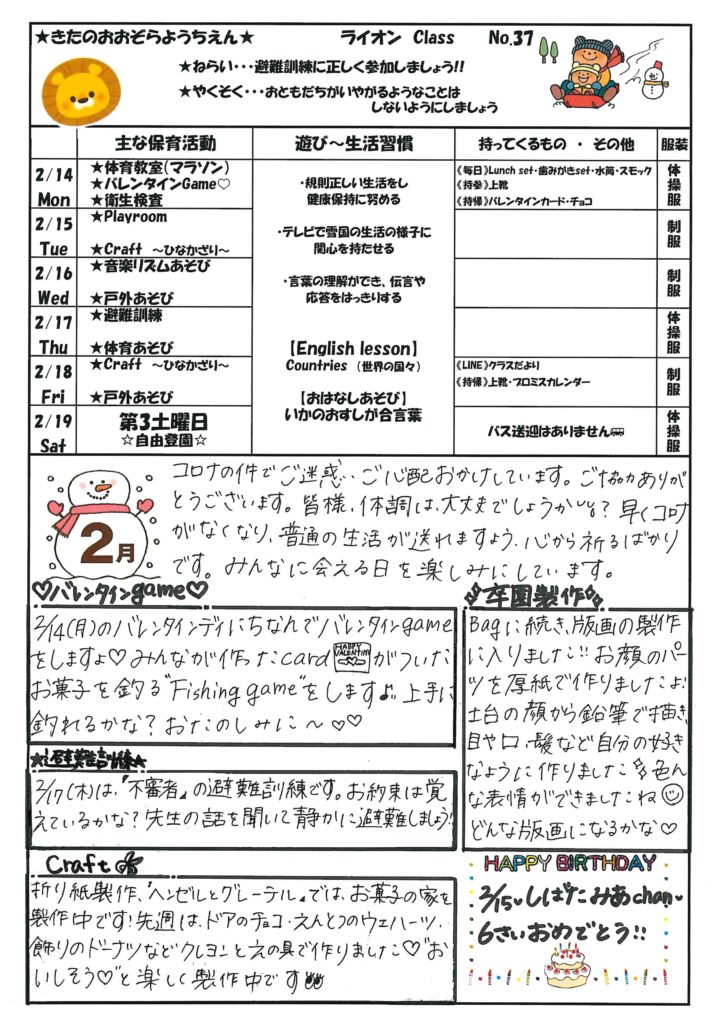 ★きたのおおぞらようちえん★　ライオン Class　No.37
★ねらい・・・避難訓練に正しく参加しましょう!!
★やくそく・・・おともだちがいやがるようなことは
しないようにしましょう
主な保育活動　遊び～生活習慣　持ってくるもの ・ その他　服装
2/14 Mon
★体育教室(マラソン)
★バレンタインGame♡
★衛生検査
・規則正しい生活をし
健康保持に努める
《毎日》Lunch set・歯みがきset・水筒・スモック
《持参》上靴
《持帰》バレンタインカード・チョコ
体操服
2/15 Tue
★Playroom
★Craft ～ひなかざり～
・テレビで雪国の生活の様子に
関心を持たせる
制服
2/16 Wed
★音楽リズムあそび
★戸外あそび
・言葉の理解ができ、伝言や
応答をはっきりする
制服
2/17 Thu
★避難訓練
★体育あそび
【English lesson】
Countries （世界の国々）
体操服
2/18 Fri
★Craft ～ひなかざり～
★戸外あそび
【おはなしあそび】
いかのおすしが合言葉
《LINE》クラスだより
《持帰》上靴・プロミスカレンダー
制服
2/19 Sat
第3土曜日
☆自由登園☆
バス送迎はありません
体操服
2月
コロナの件でご迷惑・ご心配おかけしています。ご協力ありが
とうございます。皆様、体調は、大丈夫でしょうか？早くコロナ
がなくなり、普通の生活が送れますよう、心から祈るばかり
です。みんなに会える日を楽しみにしています。
♡バレンタインgame♡
2/14(月)のバレンタインディにちなんでバレンタインgame
をしますよ♡みんなが作ったcard HAPPY VALENTINE がついた
お菓子を釣る"Fishing game"をします♪上手に
釣れるかな？おたのしみに～♡♡
★避難訓練★
2/17(木)は、「不審者」の避難訓練です。お約束は覚
えているかな？先生の話を聞いて静かに避難しましょう!!
Craft
折り紙製作、「ヘンゼルとグレーテル」では、お菓子の家を
製作中です！先週は、ドアのチョコ・えんとつのウエハース、
飾りのドーナツなどクレヨンとえの具で作りました♡"お
いしそう♡"と楽しく製作中です
卒園製作
Bagに続き、版画の製作
に入りました!!お顔のパー
ツを厚紙で作りましたよ!
土台の顔から鉛筆で描き、
目や口、髪など自分の好き
なように作りました 色ん
な表情ができましたね☺
どんな版画になるかな♡
HAPPY BIRTHDAY
2/15♥しばたみあchan♥
6さいおめでとう!!